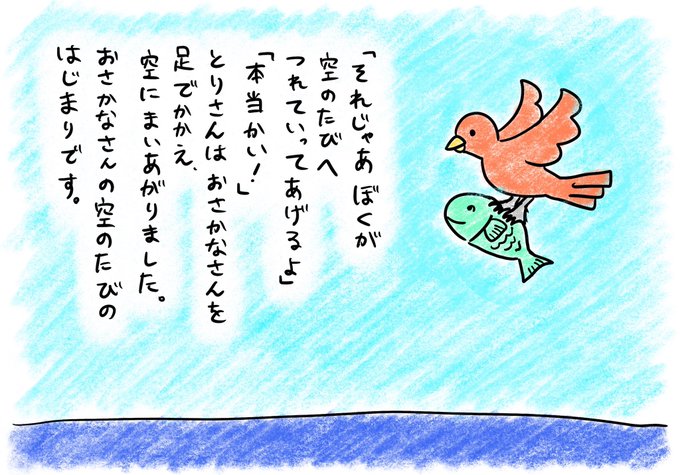 「それじゃあ ぼくが
空のたびへ
つれていってあげるよ」
「本当かい！」
とりさんは おさかなさんを
足でかかえ、
空にまいあがりました。
おさかなさんの空のたびの
はじまりです。